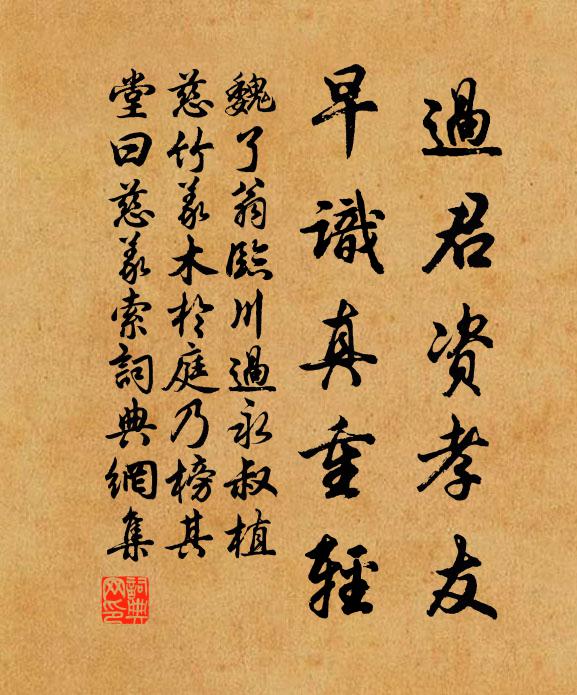 過君資孝友
早識真重輕
魏了翁臨川過永叔植
慈竹義木於庭乃榜其
堂曰慈義索詞典網集
詞典網印